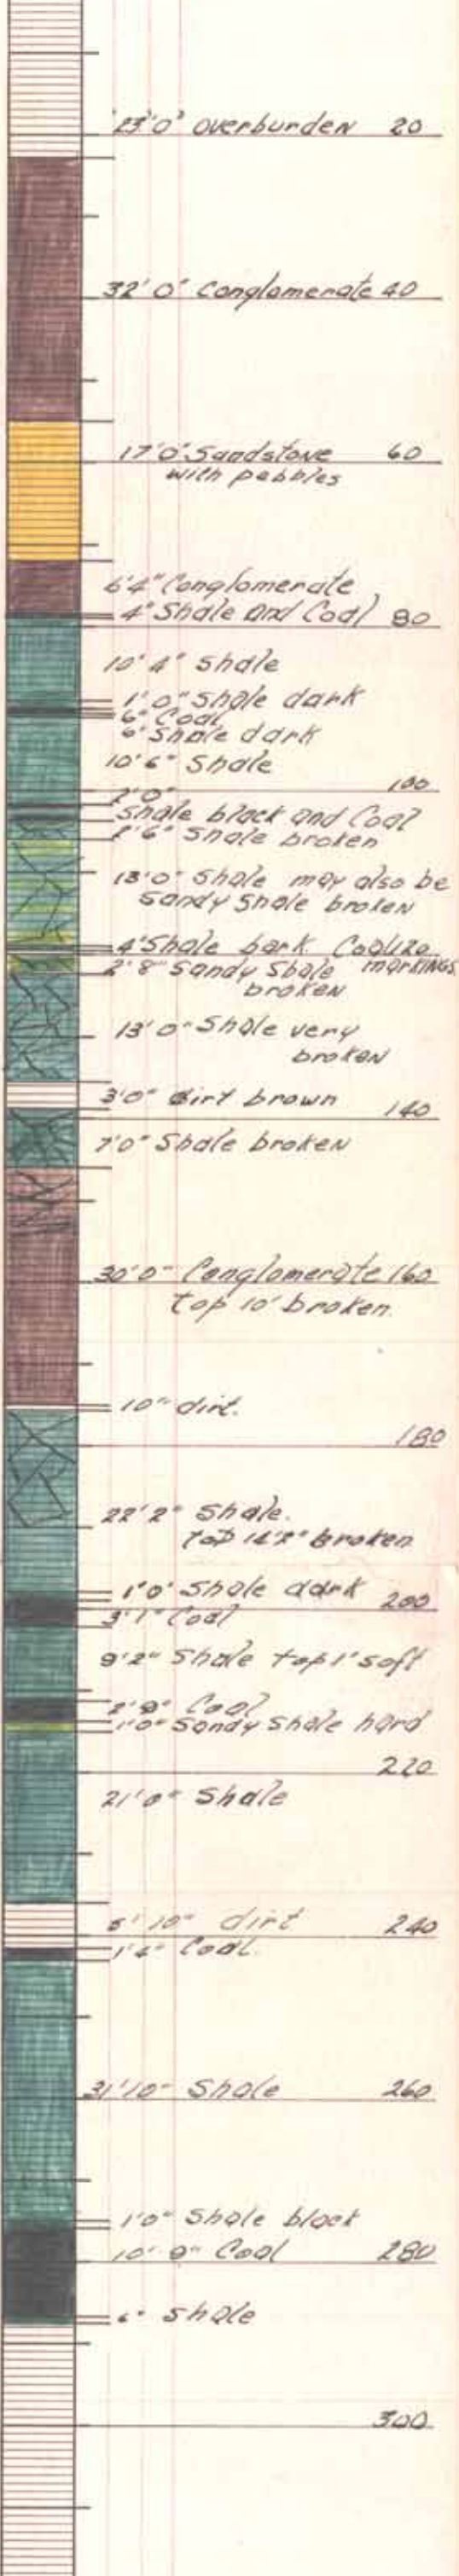 23'0" Overburden 20
32'0" Conglomerate 40
17'0" Sandstone 60
with pebbles
6'4" Conglomerate
4" Shale and Coal 80
10'4" Shale
1'0" Shale dark
6" Coal
6" Shale dark
10'6" Shale
100
2'0"
Shale black and Coal
2'6" Shale broken
13'0" Shale may also be
Sandy Shale broken
4" Shale dark Coal 120
markings
2'8" Sandy Shale
broken
13'0" Shale very
broken
3'0" dirt brown 140
7'0" Shale broken
30'0" Conglomerate 160
top 10' broken
10" dirt.
180
22'2" Shale.
top 14'2" broken
1'0" Shale dark 200
3'1" Coal
9'2" Shale top 1' soft
2'9" Coal
1'0" Sandy Shale hard
220
21'0" Shale
5'10" dirt 240
1'4" Coal.
31'10" Shale 260
1'0" Shale black
10'9" Coal 280
6" Shale
300